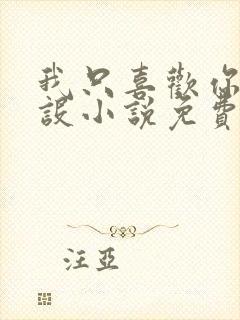 我只喜歡你
設小說免費
汪亞